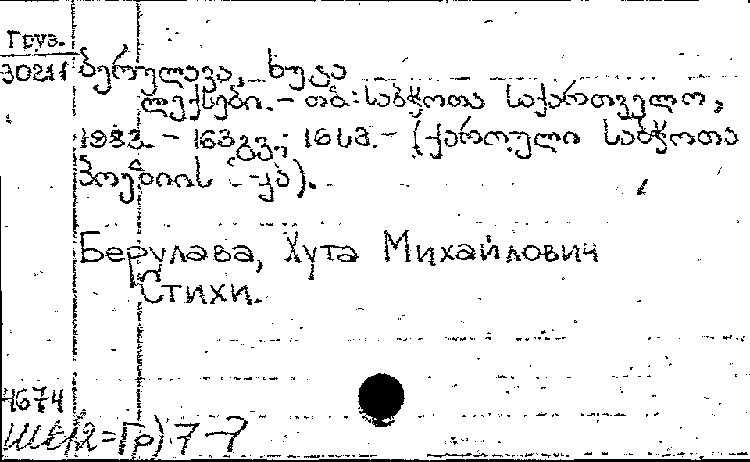 Груз.
30211 ბერულავა, ხუტა
ლექსები. - თბ.: საბჭოთა საქართველო,
1983. - 163 გვ.; 16 სმ. - (ქართული საბჭოთა
პოეზიის - ქბ).
Берулава, Хута Михайлович
Стихи.
4674
Ш6(2=Гр)7-7